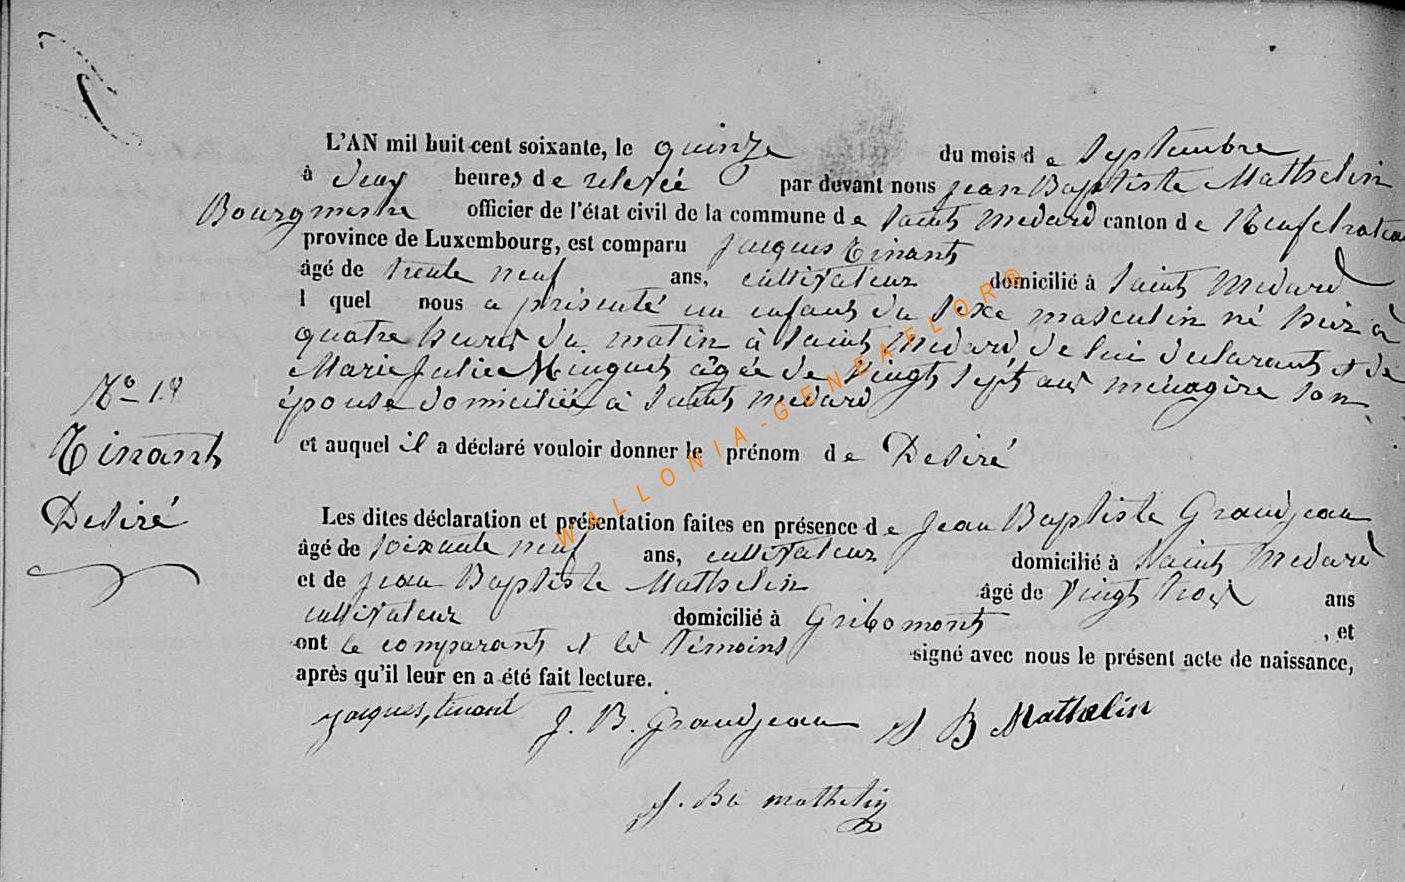 L'AN mil huit cent soixante, le quinze du mois de Septembre
à deux heures de relevée par devant nous jean Baptiste Mathelin
Bourgmestre officier de l'état civil de la commune de Saint Medard canton de Neufchateau
province de Luxembourg, est comparu Jacques Tinant
âgé de trente neuf ans, cultivateur domicilié à Saint Medard
l quel nous a présenté un enfant du sexe masculin né hier à
quatre heures du matin à Saint Medard, de lui déclarant et de
Marie Julie Minguet âgée de vingt sept ans ménagère son
épouse domiciliée à Saint Medard
N° 18
Tinant
Desiré
et auquel il a déclaré vouloir donner le prénom de Desiré
Les dites déclaration et présentation faites en présence de Jean Baptiste Grandjean
âgé de soixante neuf ans, cultivateur domicilié à Saint Medard
et de jean Baptiste Mathelin âgé de vingt trois ans
cultivateur domicilié à Gribomont , et
ont le comparant et les témoins signé avec nous le présent acte de naissance,
après qu'il leur en a été fait lecture.
jacques, tinant J. B. Grandjean J B Mathelin
J. Bte mathelin
WALLONIA-GENEAFLOR®